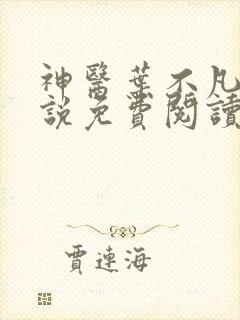 神醫葉不凡
說免費閱讀
賈連海